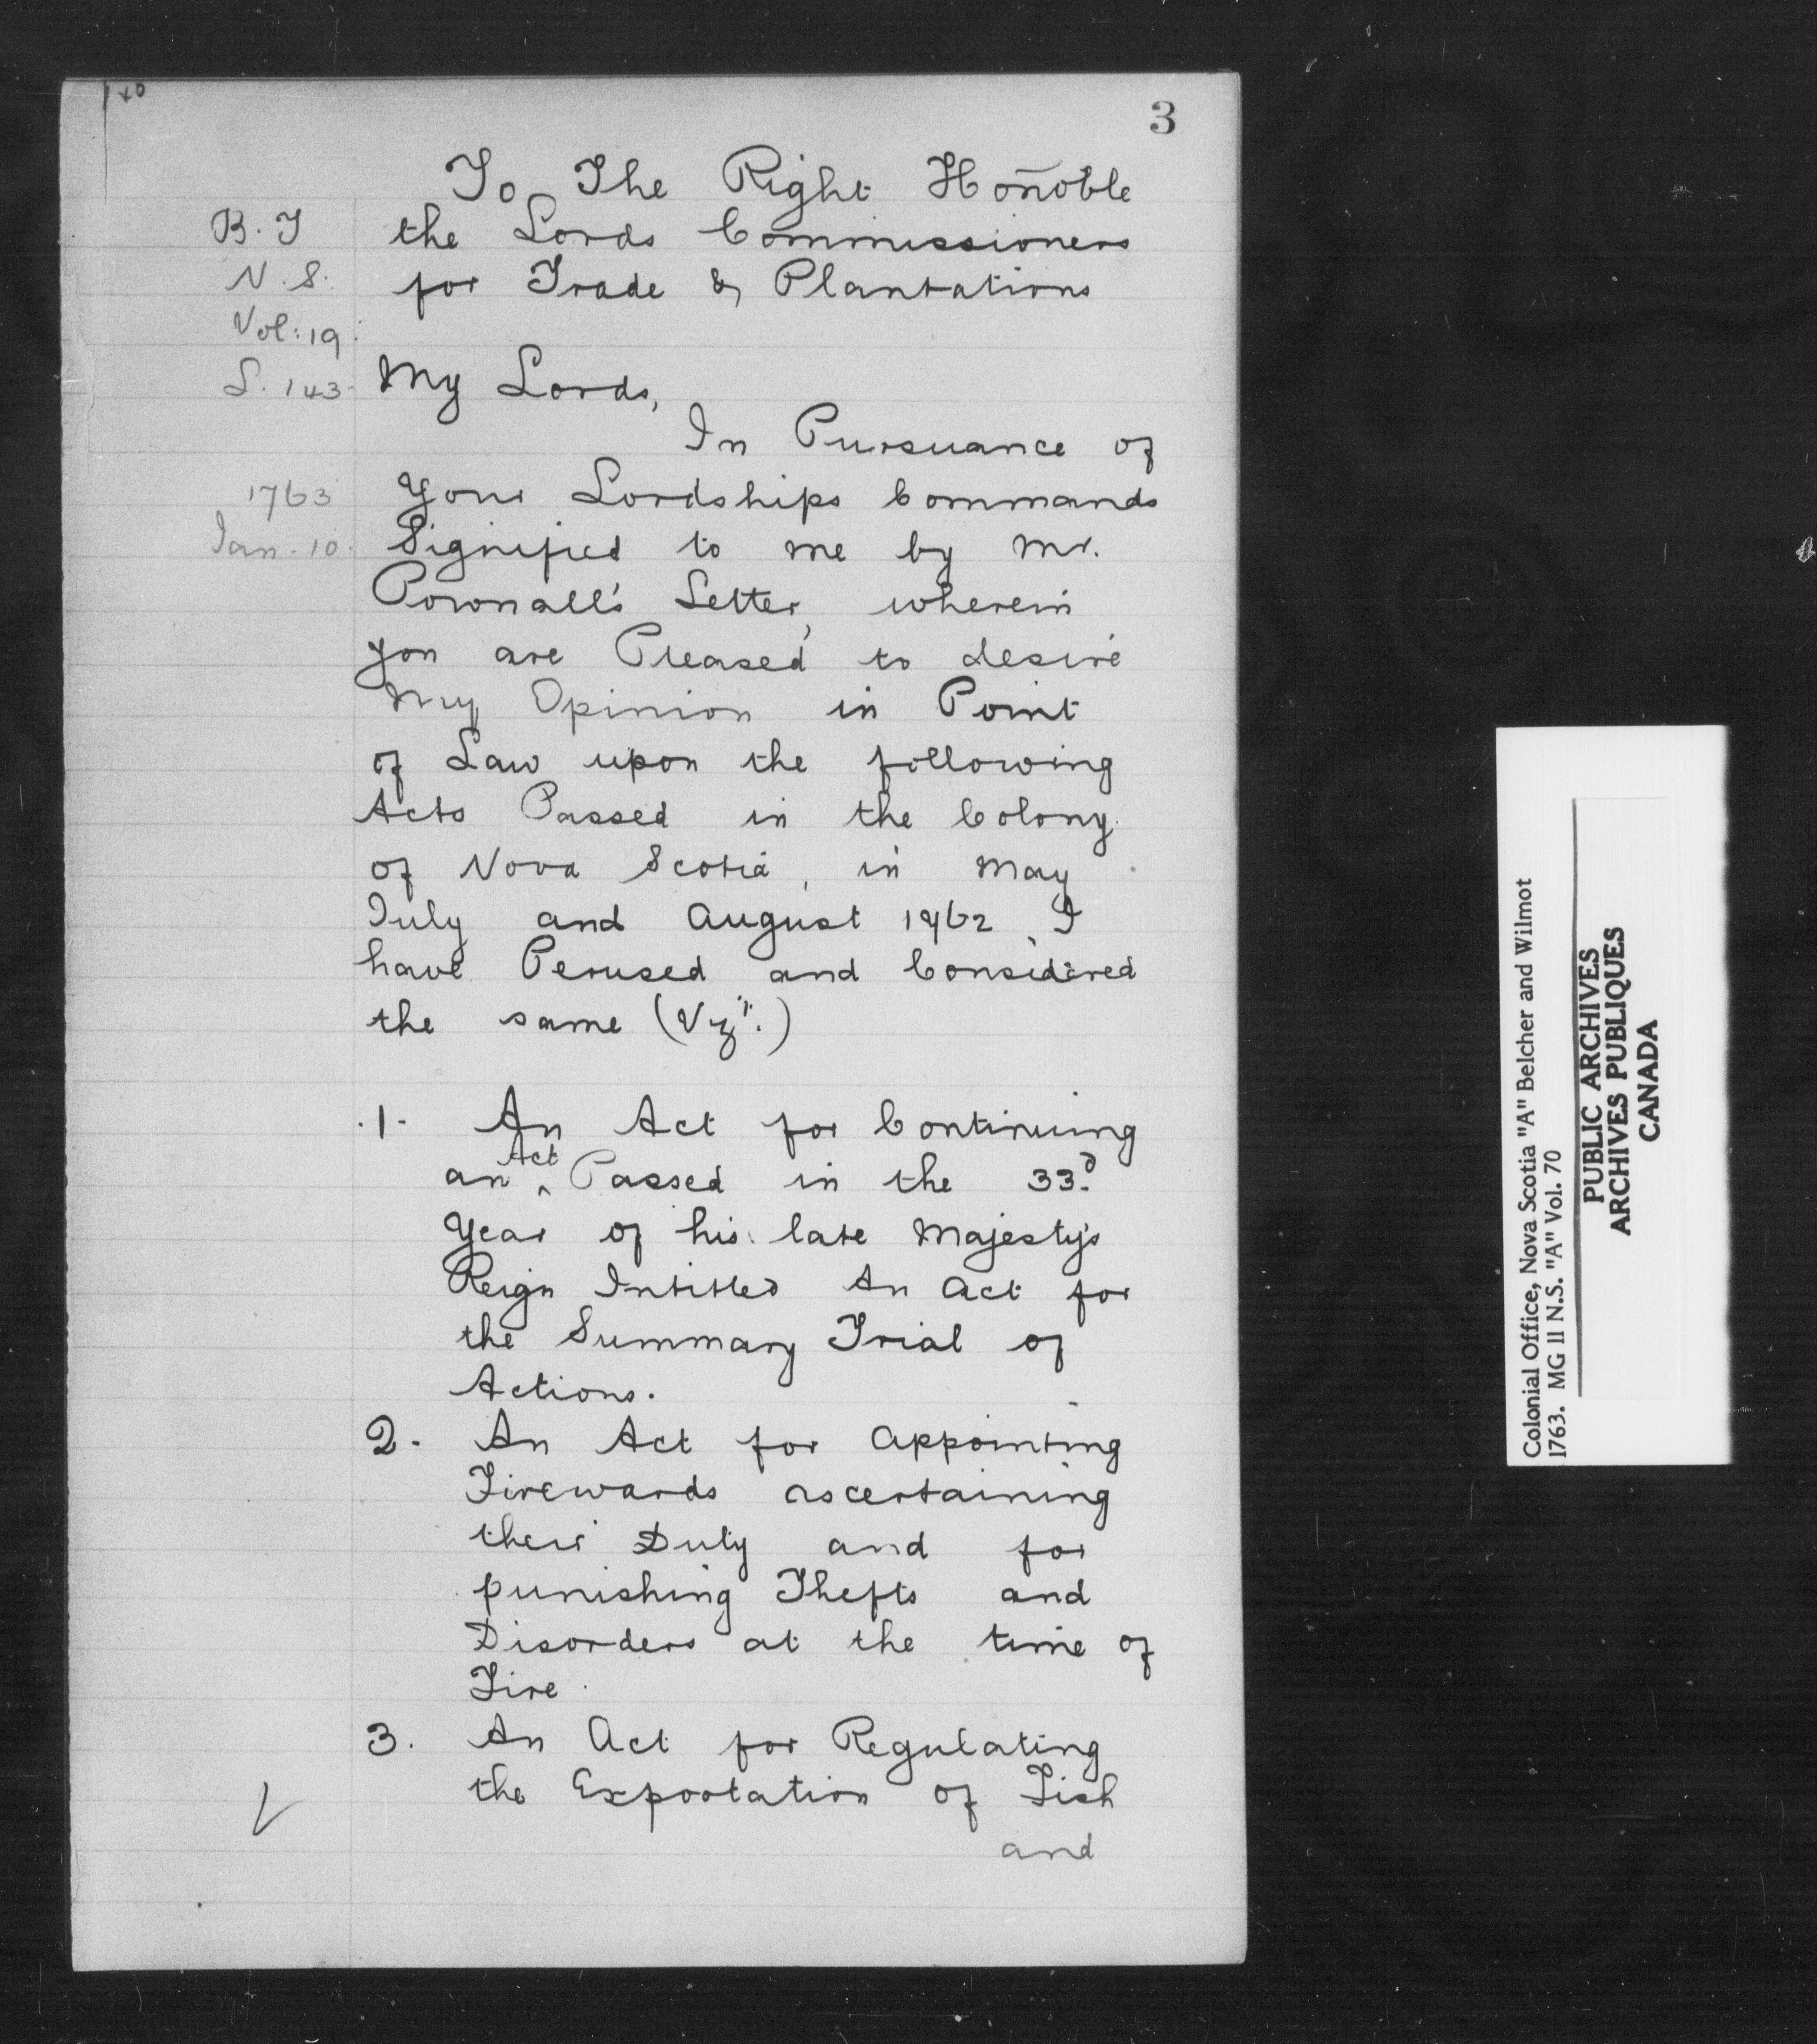 3
To The Right Hoñoble
the Lords Commissioners
for Trade & Plantations
B. T
N. S.
Vol: 19.
S. 143.
My Lords,
In Pursuance of
1763
Jan. 10.
Your Lordships Commands
Signified to me by Mr.
Pownall's Letter, wherein
you are Pleased to desire
My Opinion in Point
of Law upon the following
Acts Passed in the Colony
of Nova Scotia, in May
July and August 1762, I
have Perused and Considered
the same (Vizt.)
.1. An Act for Continuing
an Act Passed in the 33.d
Year of his late Majesty's
Reign Intitled An Act for
the Summary Trial of
Actions.
2. An Act for appointing
Firewards ascertaining
their Duty and for
punishing Thefts and
Disorders at the time of
Fire.
3. An Act for Regulating
the Exportation of Fish
and
Colonial Office, Nova Scotia "A" Belcher and Wilmot
1763. MG 11 N.S. "A" Vol. 70
PUBLIC ARCHIVES
ARCHIVES PUBLIQUES
CANADA